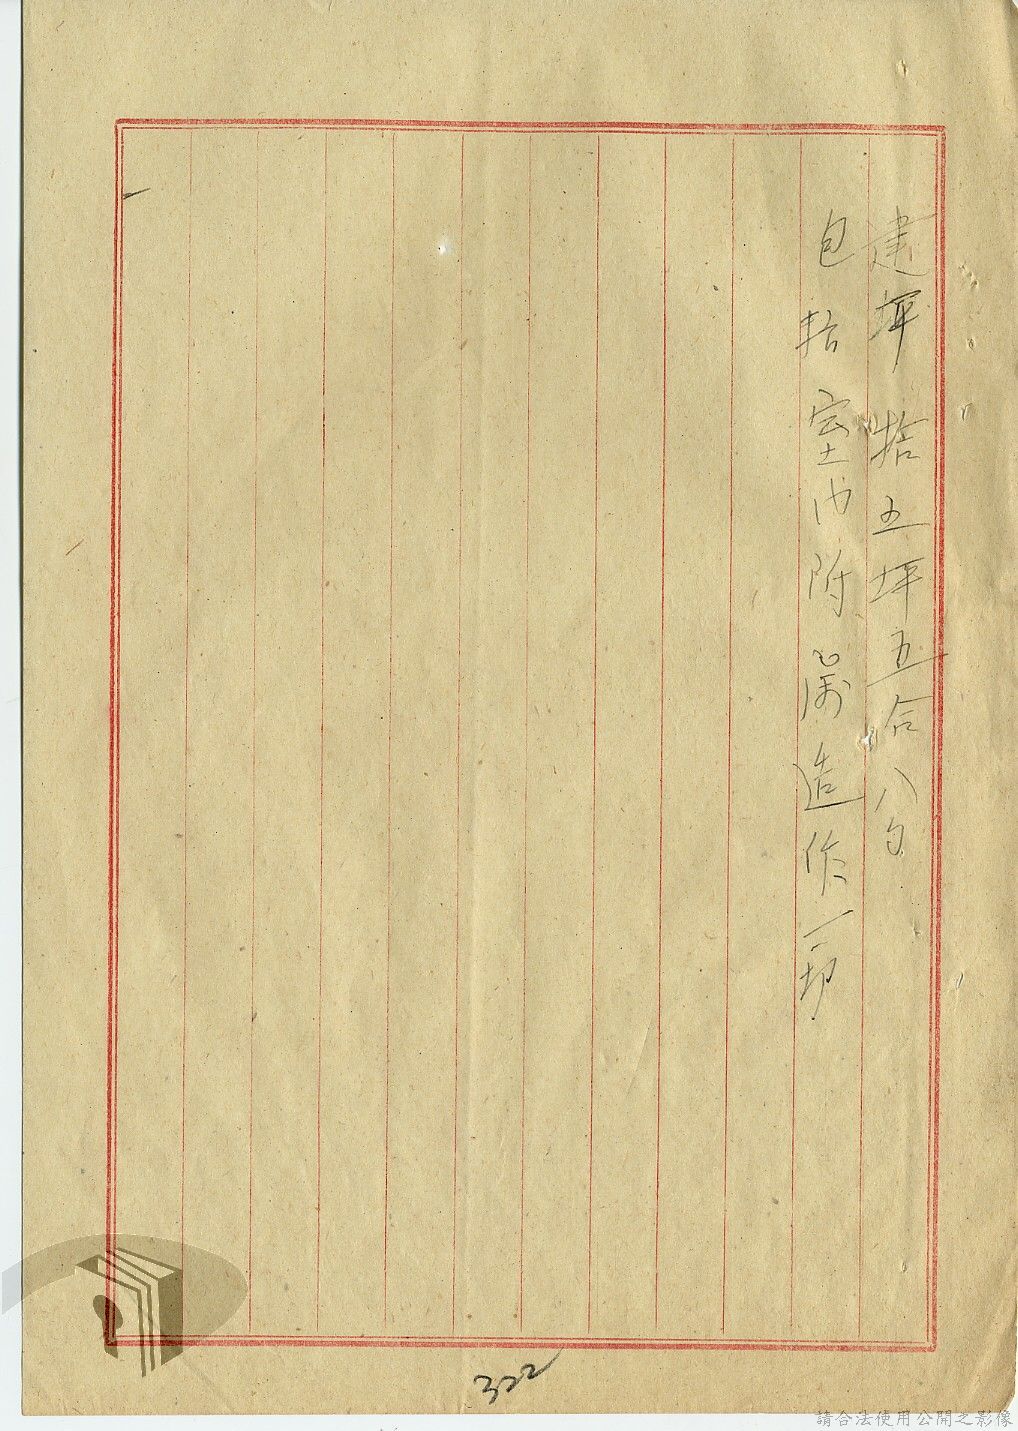 建坪拾五坪五合八勺
包括室內附属造作一切
322
請合法使用公開之影像